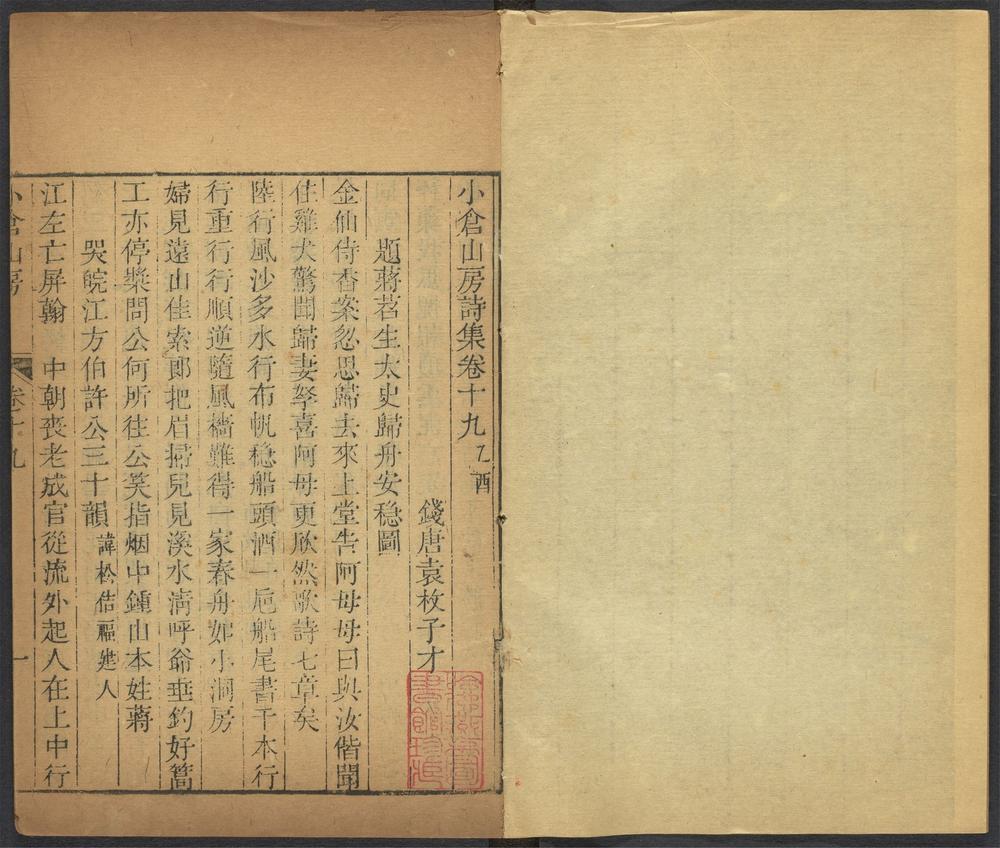 小倉山房詩集卷十九 乙酉
錢唐袁枚子才
題蔣苕生太史歸舟安穩圖
金仙侍香案忽思歸去來上堂告阿母母曰與汝偕聞
住雞犬驚聞歸妻孥喜阿母更欣然歌詩七章矣
陸行風沙多水行布帆穩船頭酒一巵船尾書千本行
行重行行順逆隨風檣難得一家春舟如小洞房
婦見遠山佳索郎把眉掃兒見溪水清呼爺垂釣好篙
工亦停槳問公何所往公笑指烟中鍾山本姓蔣
哭皖江方伯許公三十韻 諱松佶福建人
江左亡屏翰 中朝喪老成官從流外起人在上中行
小倉山房 卷十九 一